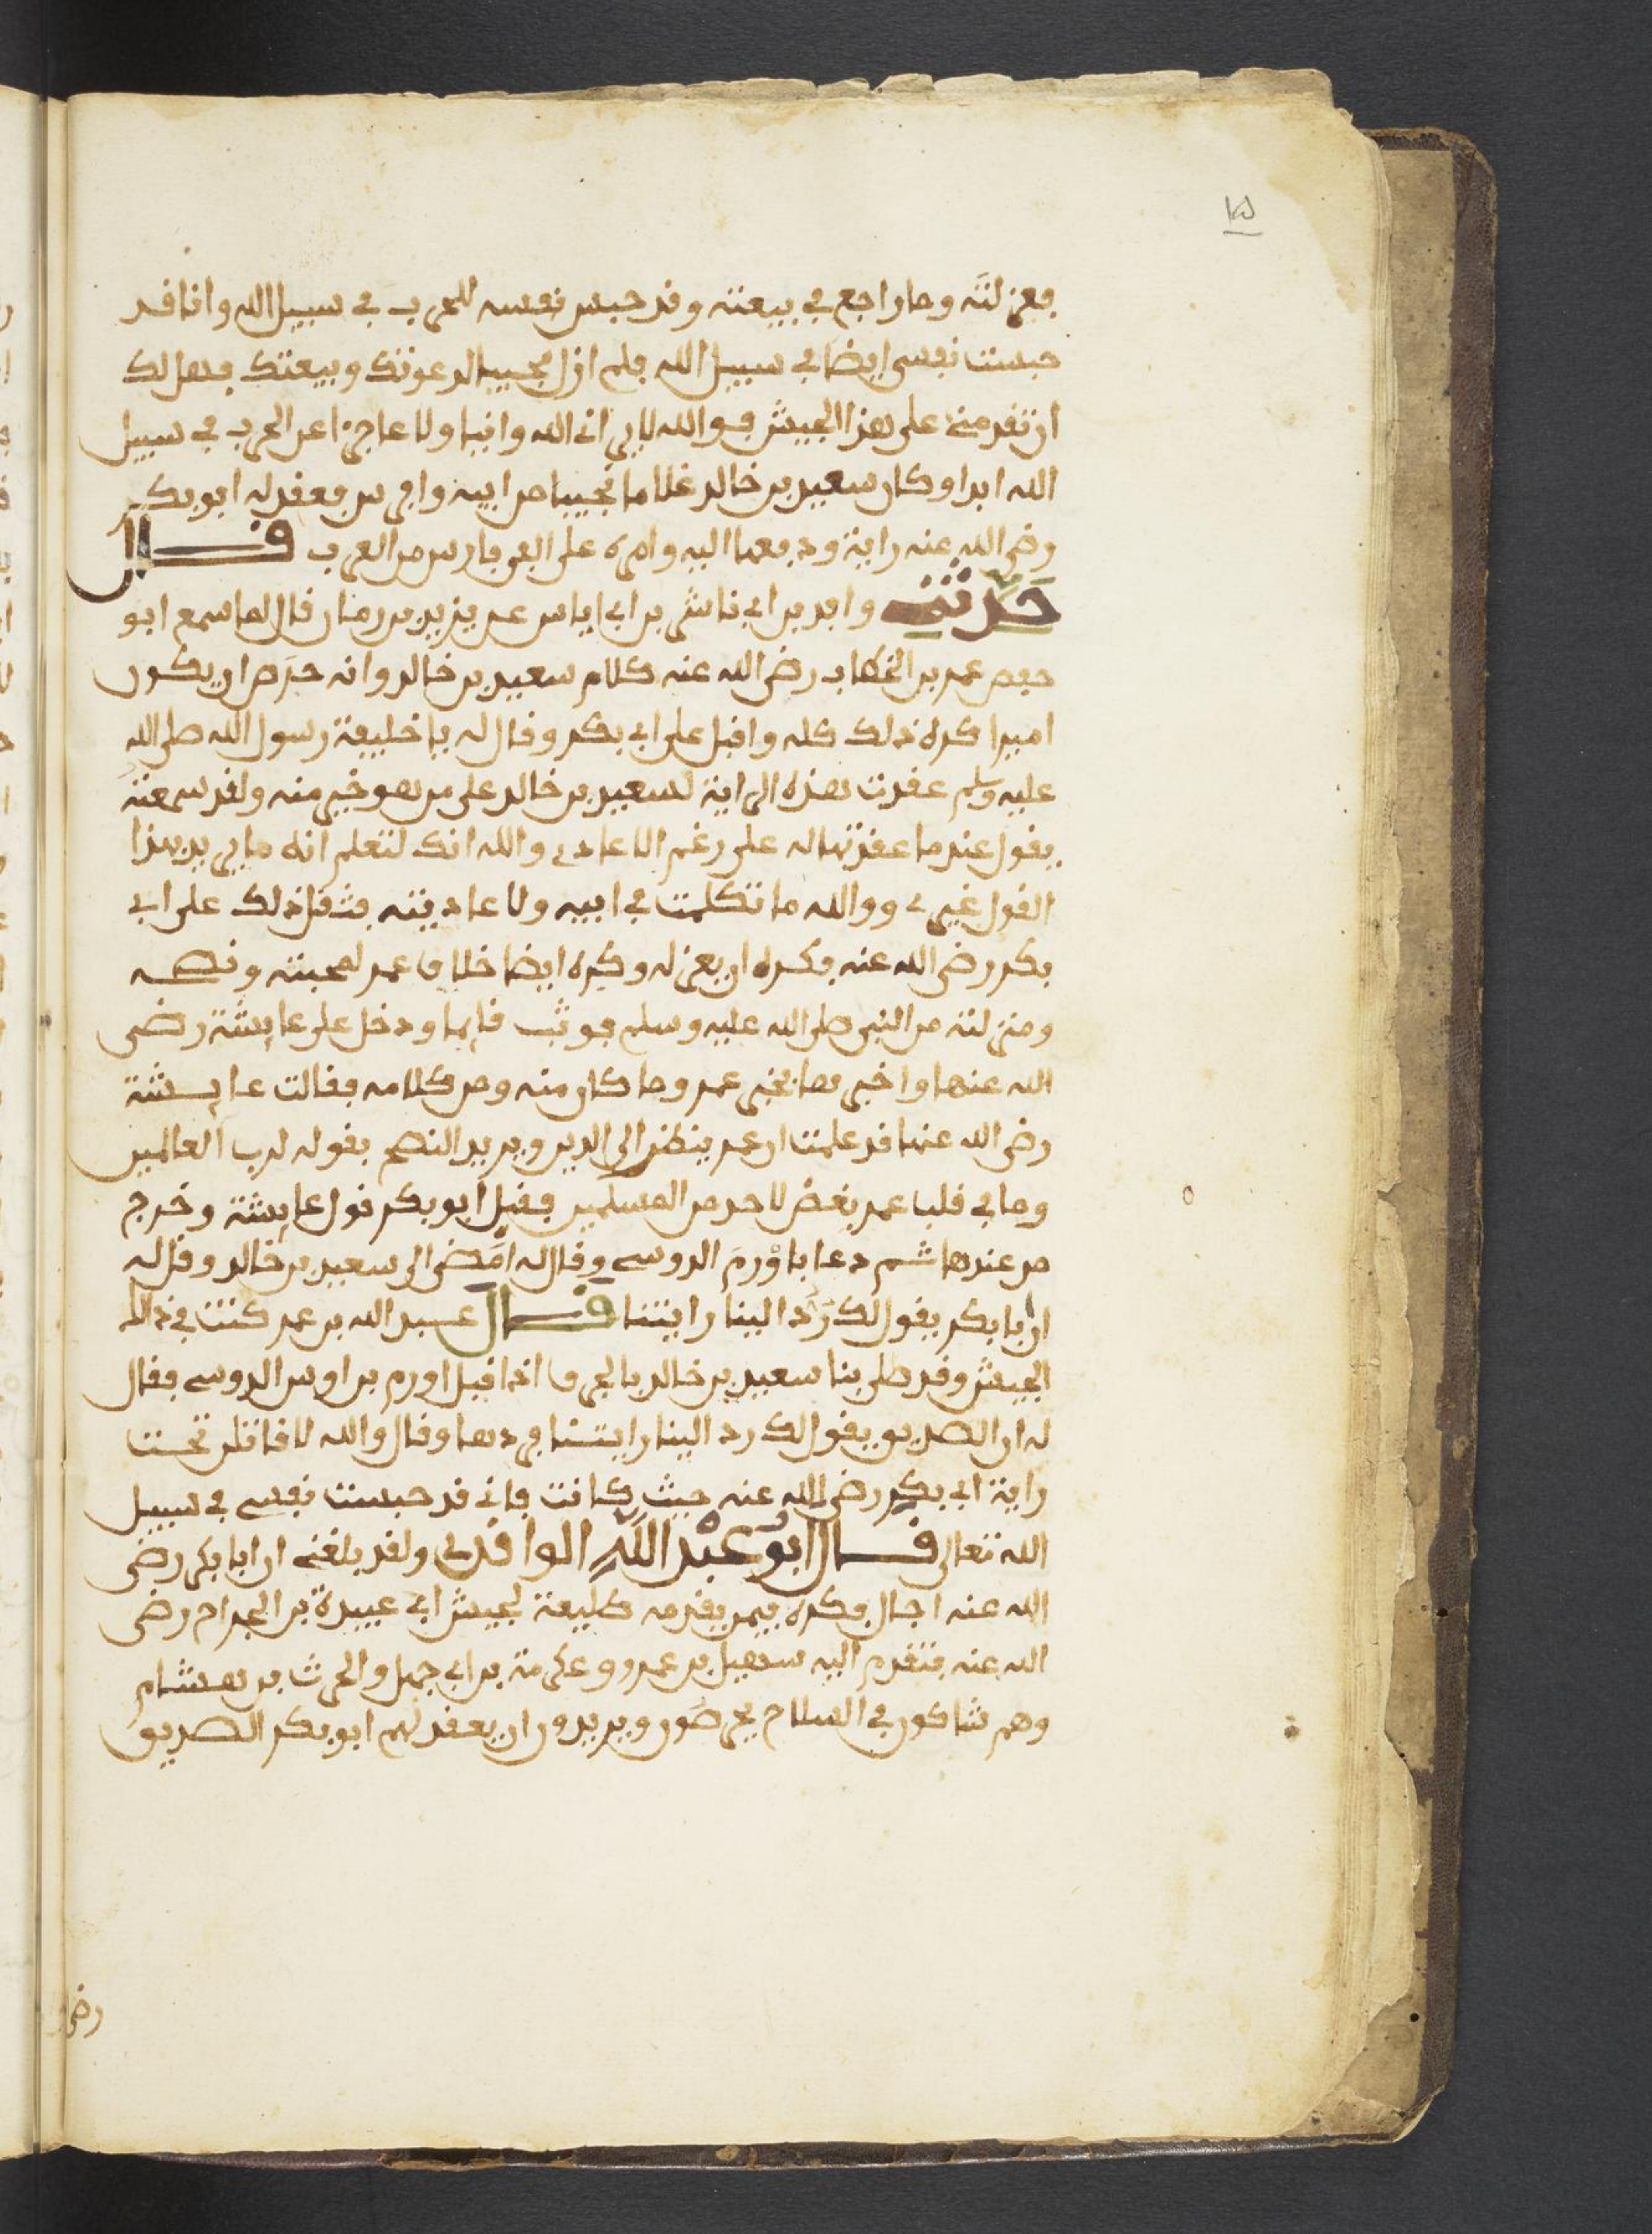 ١٥
فعزلته وما راجع في بيعته وقد حبس نفسه للحرب في سبيل الله وانا قد
حبست نفسي ايضا في سبيل الله فلم ازل مجيبا لدعوتك وبيعتك فهل لك
ان تقدمني على هذا الجيش فو الله لا يراني الله وانيا ولا عاجزا عن الحرب في سبيل
الله ابدا وكان سعيد بن خالد غلاما نجيبا من ابيه وافرس فعقد له ابو بكر
رضي الله عنه راية ودفعها اليه وامره على الفي فارس من العرب قال
حدثني واقد بن ابي ناشر بن ابي اياس عن يزيد بن رمان قال لما سمع ابو
حفص عمر بن الخطاب رضي الله عنه كلام سعيد بن خالد وانه حرص ان يكون
اميرا كره ذلك كله واقبل على ابي بكر وقال له يا خليفة رسول الله صلى الله
عليه وسلم عقدت هذه الراية لسعيد بن خالد على من هو خير منه ولقد سمعته
يقول عندما عقدتها له على رغم الاعادي والله انك لتعلم انه ما يريد بهذا
القول غيري ووالله ما تكلمت في ابيه ولا عاديته فثقل ذلك على ابي
بكر رضي الله عنه فكره ان يعزله وكره ايضا خلاف عمر لمحبته ونصحه
ومنزلته من النبي صلى الله عليه وسلم فوثب قايما ودخل على عايشة رضي
الله عنها واخبرها بخبر عمر وما كان منه ومن كلامه فقالت عايشة
رضي الله عنها قد علمت ان عمر ينظر الى الدين ويريد النصح بقوله لرب العالمين
وما في قلب عمر بغض لاحد من المسلمين فقبل ابو بكر قول عايشة وخرج
من عندها ثم دعا باورم الدوسي وقال له امض الى سعيد بن خالد وقل له
ان ابا بكر يقول لك رد الينا رايتنا قال عبد الله بن عمر كنت في ذلك
الجيش وقد صلى بنا سعيد بن خالد بالجرف اذ اقبل اورم بن اوس الدوسي فقال
له ان الصديق يقول لك رد الينا رايتنا فردها وقال والله لاقاتلن تحت
راية ابي بكر رضي الله عنه حيث كانت فاني قد حبست نفسي في سبيل
الله تعالى قال ابو عبد الله الواقدي ولقد بلغني ان ابا بكر رضي
الله عنه اجال فكره فيمن يقدمه طليعة لجيش ابي عبيدة بن الجراح رضي
الله عنه فتقدم اليه سهيل بن عمرو وعكرمة بن ابي جهل والحرث بن هشام
وهم شاكون في السلاح يحرضون ويريدون ان يعقد لهم ابو بكر الصديق
رضي